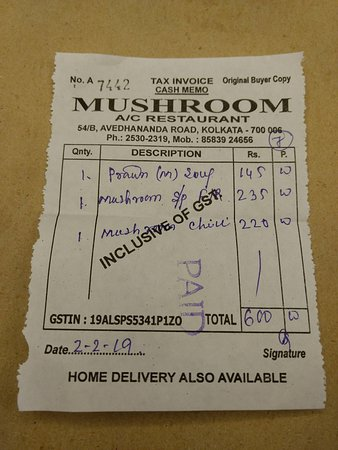 No. A 7442 TAX INVOICE Original Buyer Copy
CASH MEMO
MUSHROOM
A/C RESTAURANT
54/B, AVEDHANANDA ROAD, KOLKATA - 700 006
Ph.: 2530-2319, Mob.: 85839 24656
7
Qnty. DESCRIPTION Rs. P.
1 Prawn (M) Soup 145 00
1 Mushroom S/P 235 00
1 Mushroom Chili 220 00
INCLUSIVE OF GST
PAID
GSTIN : 19ALSPS5341P1ZO TOTAL 600 00
Date 2-2-19 Signature
HOME DELIVERY ALSO AVAILABLE